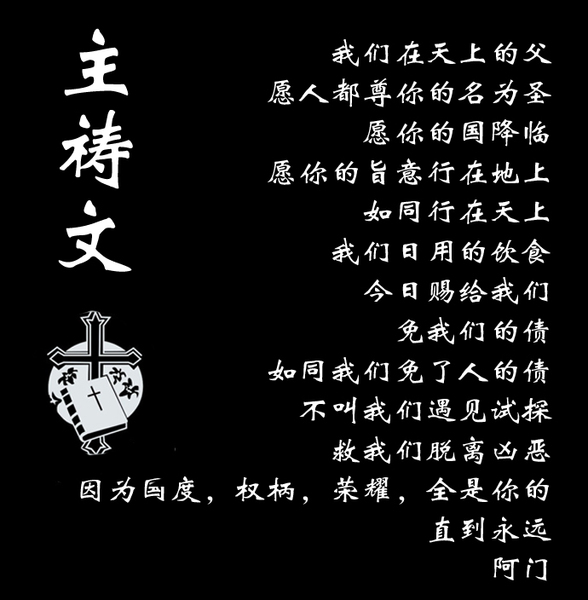 主祷文
我们在天上的父
愿人都尊你的名为圣
愿你的国降临
愿你的旨意行在地上
如同行在天上
我们日用的饮食
今日赐给我们
免我们的债
如同我们免了人的债
不叫我们遇见试探
救我们脱离凶恶
因为国度，权柄，荣耀，全是你的
直到永远
阿门